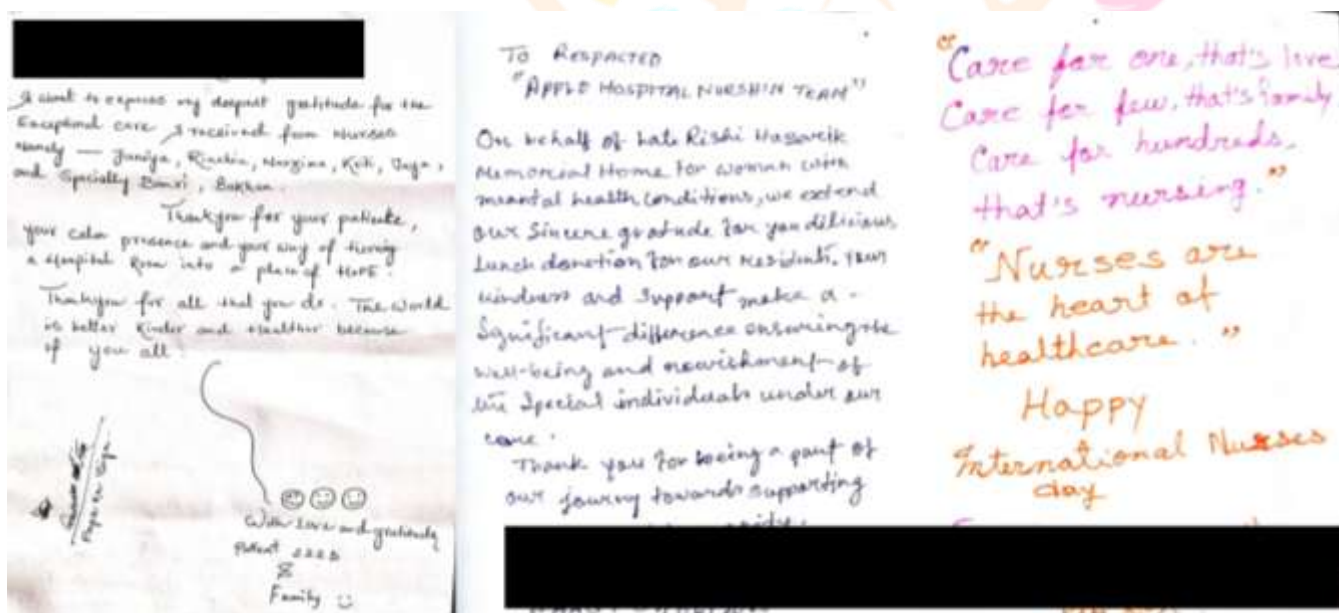 I want to express my deepest gratitude for the
Exceptional care I received from Nurses
Namely — Janiya, Rinchin, Nargima, Keti,
and Specially
Thankyou for your patience,
your calm presence and your way of turning
a Hospital Room into a place of HOPE.
Thankyou for all that you do. The world
is better Kinder and Healthier because
of you all
With Love and gratitude
Patient
&
Family
TO RESPACTED
"APPLE HOSPITAL NURSHIN TEAM"
On behalf of Late Rishi
Memorial Home for woman with
meantal health conditions, we extend
our Sincere gratude for you dilicious
Lunch donetion for our residents. Your
kindness and support make a -
Significant difference ensuring the
well-being and nowrishment of
the Special individuals under our
care.
Thank you for being a part of
our journy towards supporting
"Care for one, that's love
Care for few, that's family
Care for hundreds,
that's nursing."
"Nurses are
the heart of
healthcare."
Happy
International Nurses
day